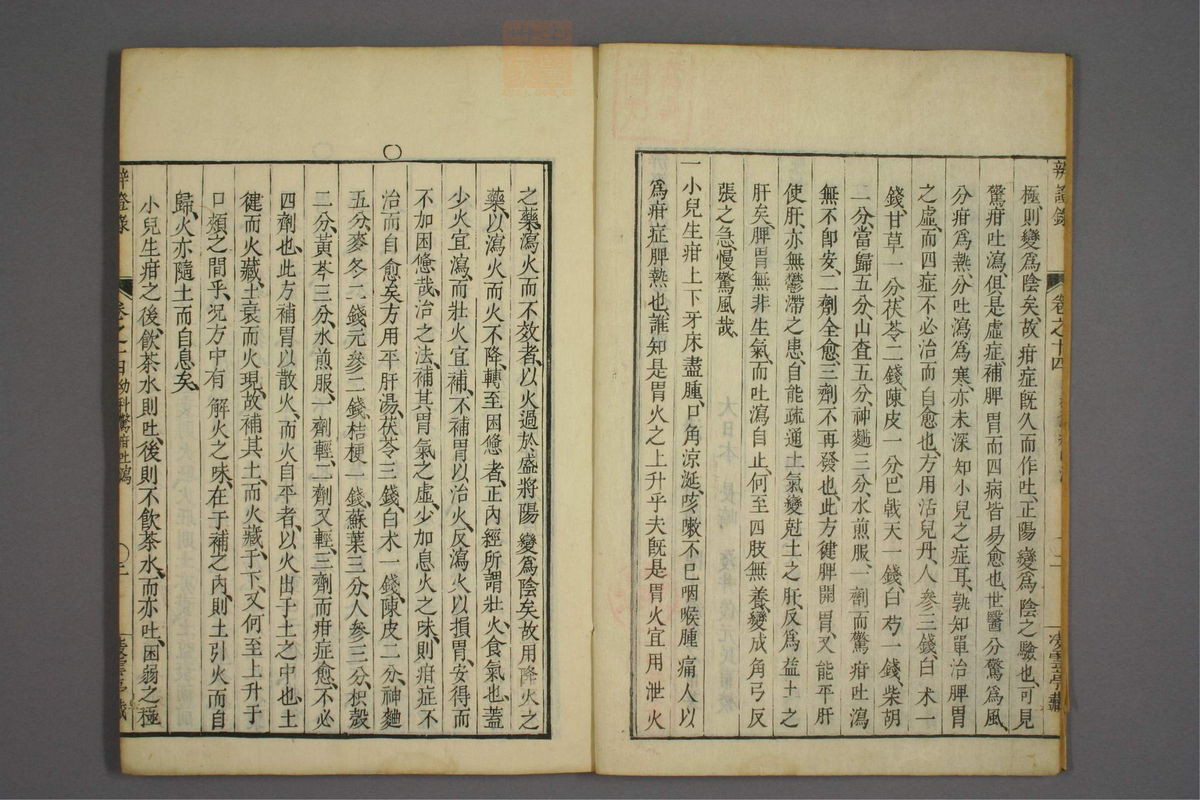 辨證錄 卷之十四 凌雲亭藏
極則變爲陰矣故疳症旣久而作吐正陽變爲陰之驗也可見
驚疳吐瀉俱是虛症補脾胃而四病皆易愈也世醫分驚爲風
分疳爲熱分吐瀉爲寒亦未深知小兒之症耳孰知單治脾胃
之虛而四症不必治而自愈也方用活兒丹人參三錢白术一
錢甘草一分茯苓二錢陳皮一分巴戟天一錢白芍一錢柴胡
二分當歸五分山査五分神麯三分水煎服一劑而驚疳吐瀉
無不卽安二劑全愈三劑不再發也此方健脾開胃又能平肝
使肝亦無鬱滯之患自能疏通土氣變尅土之肝反爲益土之
肝矣脾胃無非生氣而吐瀉自止何至四肢無養變成角弓反
張之急慢驚風哉
一小兒生疳上下牙床盡腫口角涼涎咳嗽不已咽喉腫痛人以
爲疳症脾熱也誰知是胃火之上升乎夫旣是胃火宜用泄火
之藥瀉火而不效者以火過於盛將陽變爲陰矣故用降火之
藥以瀉火而火不降轉至困憊者正內經所謂壯火食氣也蓋
少火宜瀉而壯火宜補不補胃以治火反瀉火以損胃安得而
不加困憊哉治之法補其胃氣之虛少加息火之味則疳症不
治而自愈矣方用平肝湯茯苓三錢白术一錢陳皮二分神麯
五分麥冬二錢元參二錢桔梗一錢蘇葉三分人參三分枳殼
二分黃芩三分水煎服一劑輕二劑又輕三劑而疳症愈不必
四劑也此方補胃以散火而火自平者以火出于土之中也土
健而火藏土衰而火現故補其土而火藏于下又何至上升于
口頰之間乎況方中有解火之味在于補之內則土引火而自
歸火亦隨土而自息矣
小兒生疳之後飮茶水則吐後則不飮茶水而亦吐困弱之極
辨證錄 卷之十四幼科驚疳吐瀉 凌雲亭藏